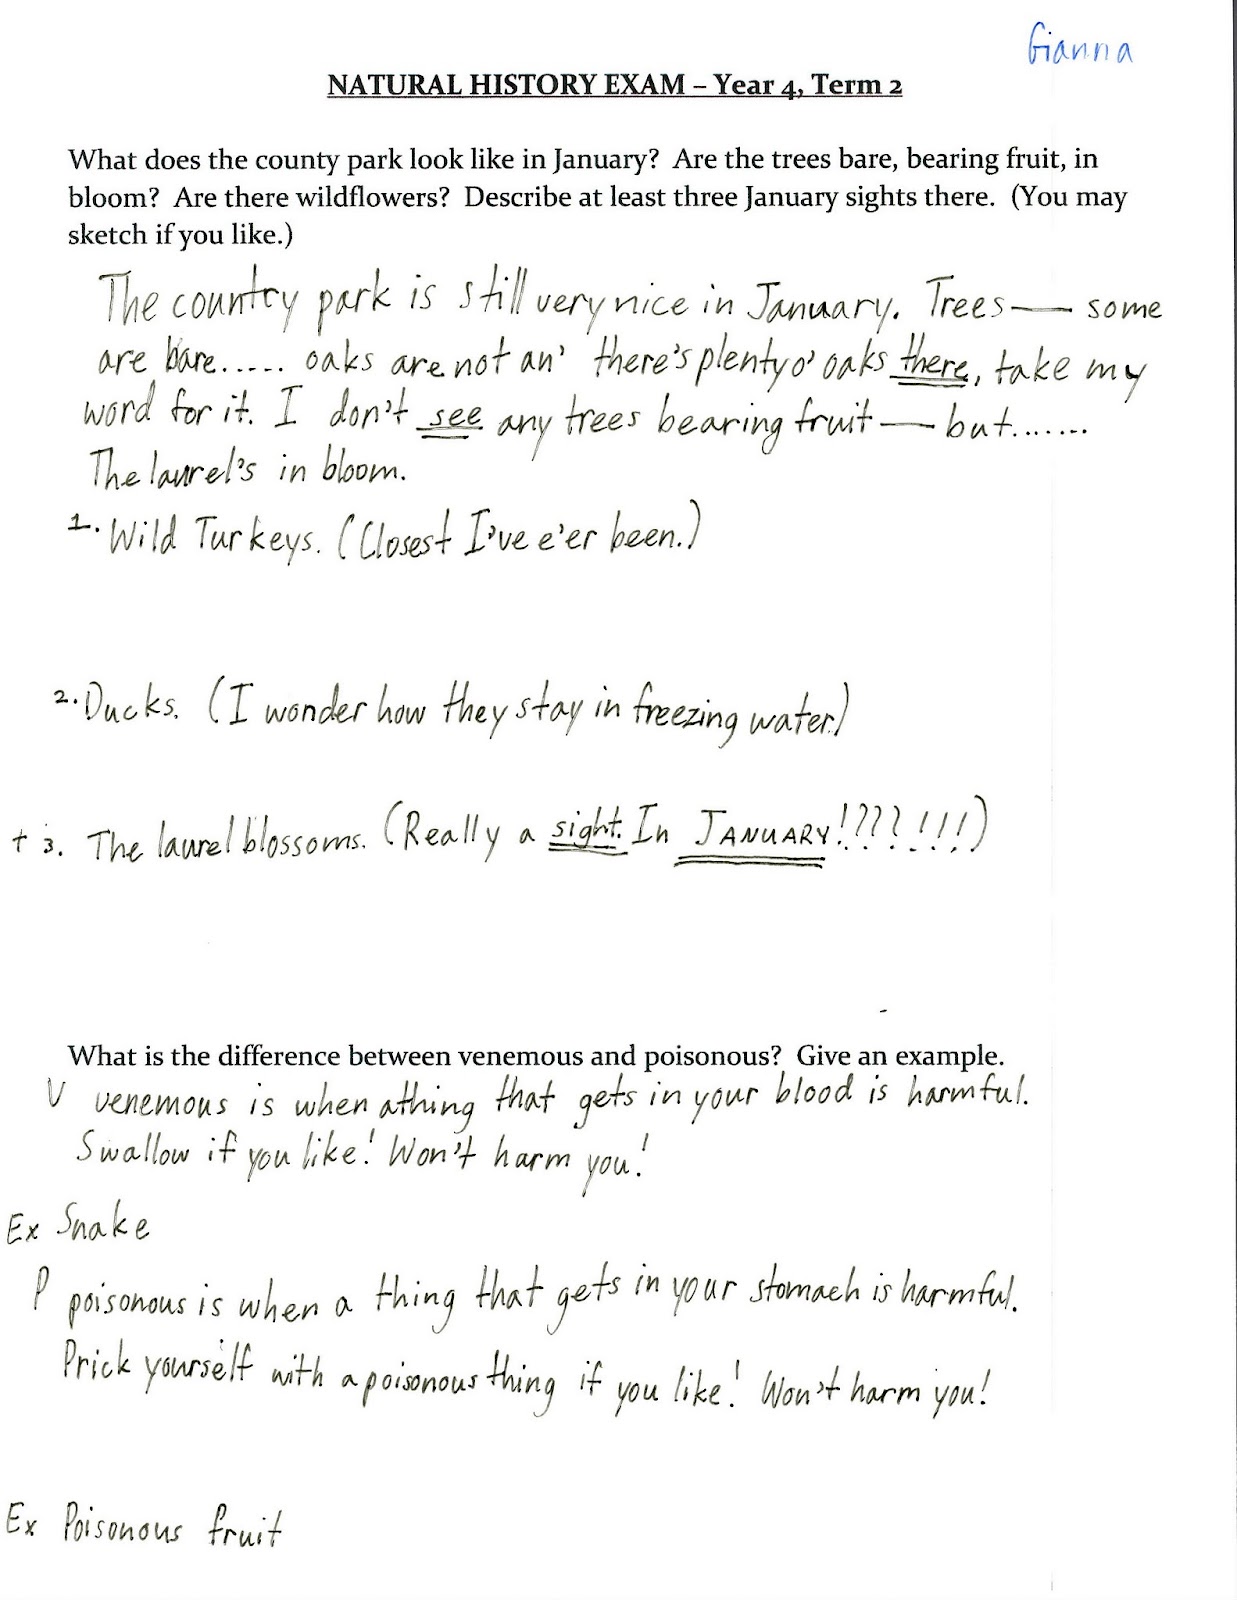 Gianna
NATURAL HISTORY EXAM – Year 4, Term 2
What does the county park look like in January?  Are the trees bare, bearing fruit, in
bloom?  Are there wildflowers?  Describe at least three January sights there.  (You may
sketch if you like.)
The country park is still very nice in January. Trees — some
are bare..... oaks are not an' there's plenty o' oaks there, take my
word for it. I don't see any trees bearing fruit — but.......
The laurel's in bloom.
1. Wild Turkeys. (Closest I've e'er been.)
2. Ducks. (I wonder how they stay in freezing water.)
+ 3. The laurel blossoms. (Really a sight. In JANUARY!????!!!)
What is the difference between venemous and poisonous?  Give an example.
V venemous is when a thing that gets in your blood is harmful.
Swallow if you like! Won't harm you!
Ex Snake
P poisonous is when a thing that gets in your stomach is harmful.
Prick yourself with a poisonous thing if you like! Won't harm you!
Ex Poisonous fruit